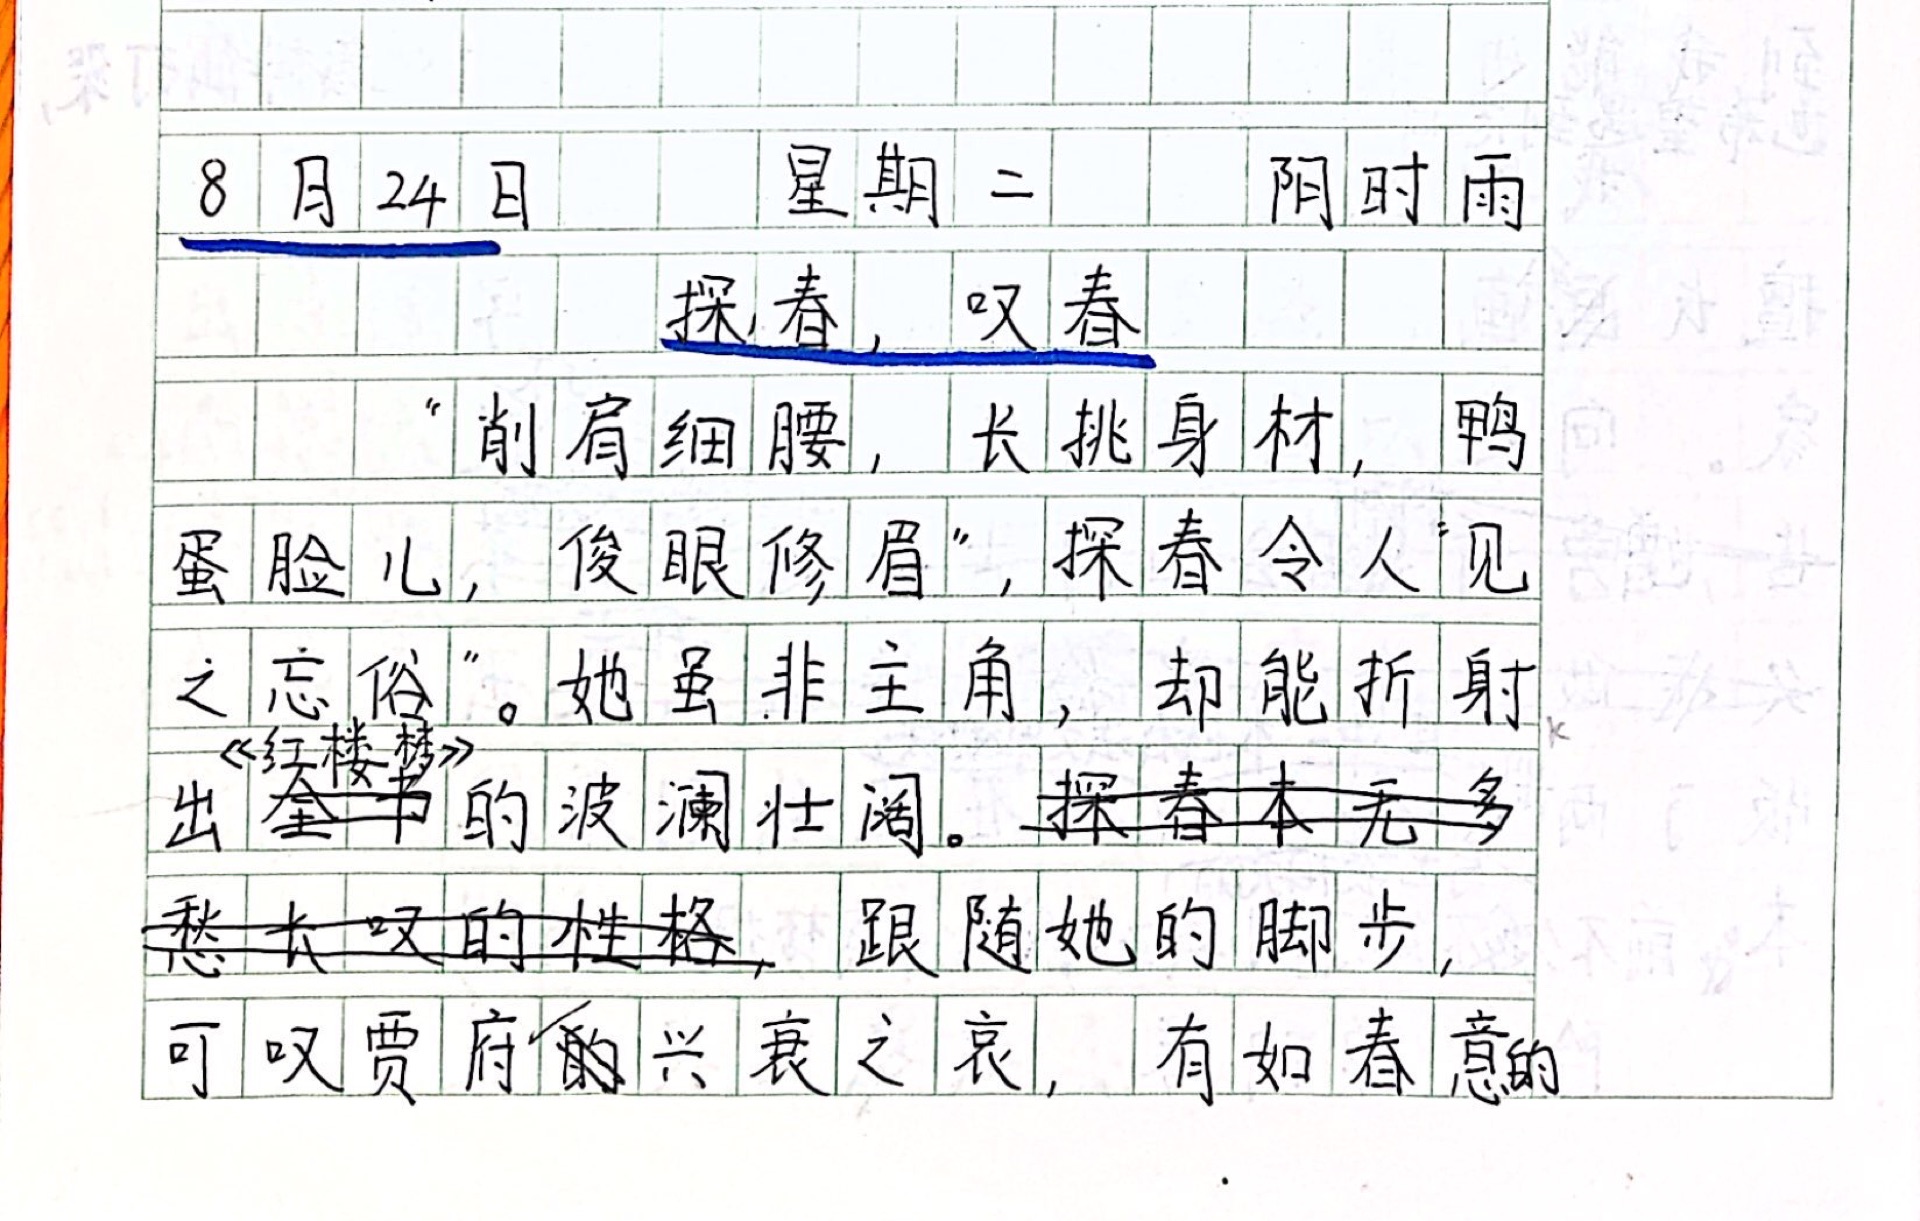 8月24日 星期二 阴时雨
探春，叹春
“削肩细腰，长挑身材，鸭
蛋脸儿，俊眼修眉”，探春令人“见
之忘俗”。她虽非主角，却能折射
《红楼梦》
出全书的波澜壮阔。探春本无多
愁长叹的性格，跟随她的脚步，
可叹贾府的兴衰之哀，有如春意的